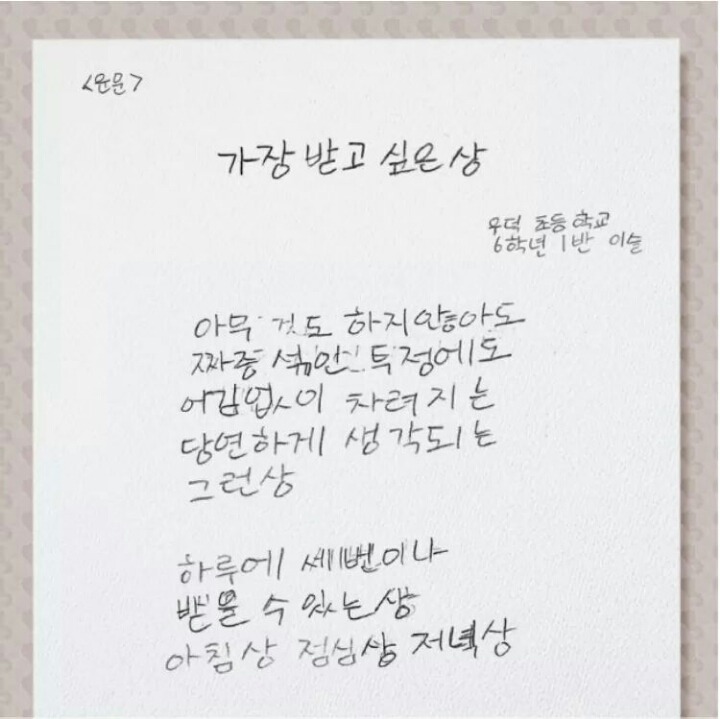 <운문>
가장 받고 싶은 상
우덕 초등학교
6학년 1반 이슬
아무 것도 하지않아도
짜증 섞인 투정에도
어김없이 차려지는
당연하게 생각되는
그런상
하루에 세번이나
받을 수 있는상
아침상 점심상 저녁상